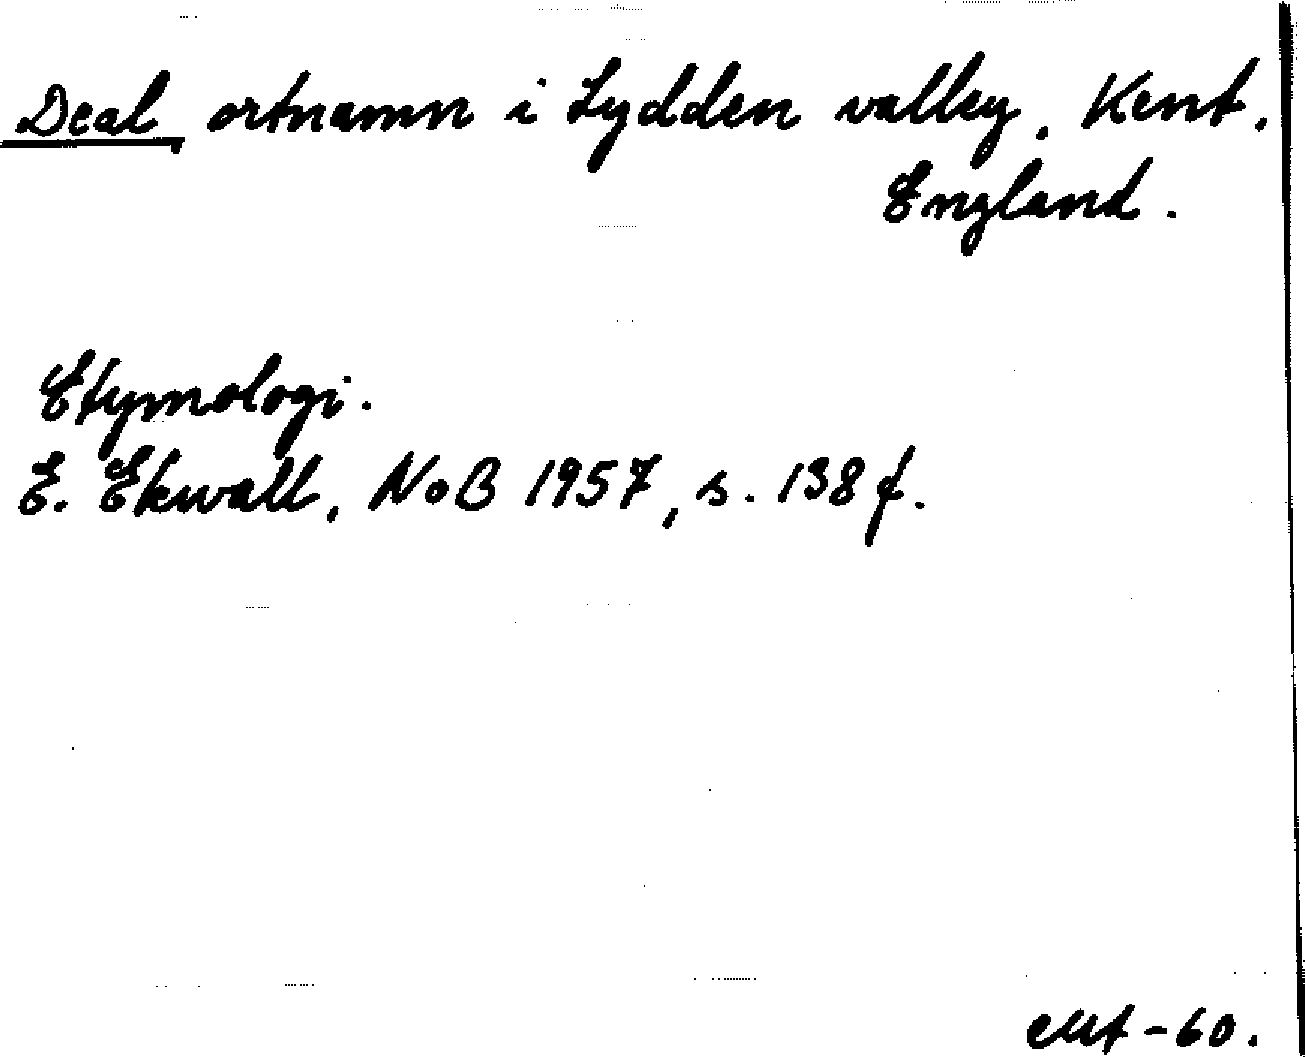 Deal, ortnamn i Lydden valley, Kent,
England.
Etymologi.
E. Ekwall, NoB 1957, s. 138 f.
-60.